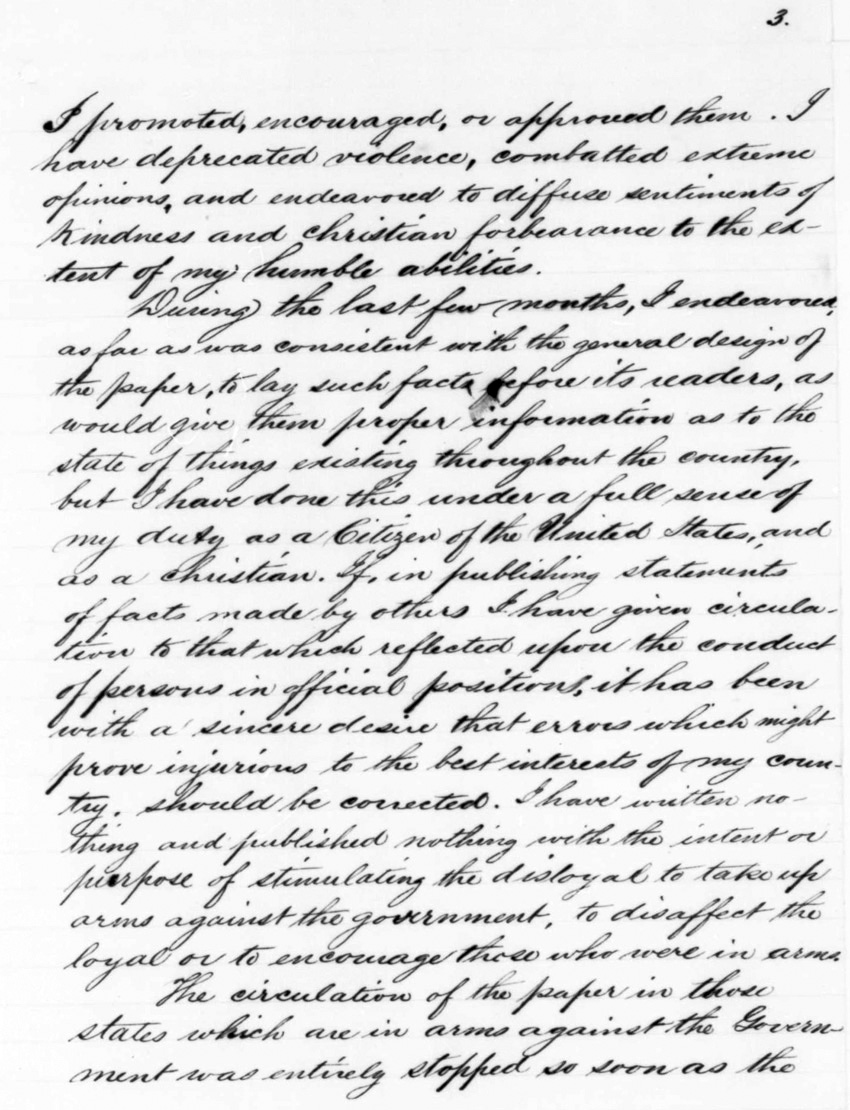 3.
I promoted, encouraged, or approved them. I
have deprecated violence, combatted extreme
opinions, and endeavored to diffuse sentiments of
kindness and christian forbearance to the ex-
tent of my humble abilities.
During the last few months, I endeavored,
as far as was consistent with the general design of
the paper, to lay such facts before its readers, as
would give them proper information as to the
state of things existing throughout the country,
but I have done this under a full sense of
my duty as a Citizen of the United States, and
as a christian. If, in publishing statements
of facts made by others I have given circula-
tion to that which reflected upon the conduct
of persons in official positions, it has been
with a sincere desire that errors which might
prove injurious to the best interests of my coun-
try, should be corrected. I have written no-
thing and published nothing with the intent or
purpose of stimulating the disloyal to take up
arms against the government, to disaffect the
loyal or to encourage those who were in arms.
The circulation of the paper in those
states which are in arms against the Govern-
ment was entirely stopped so soon as the